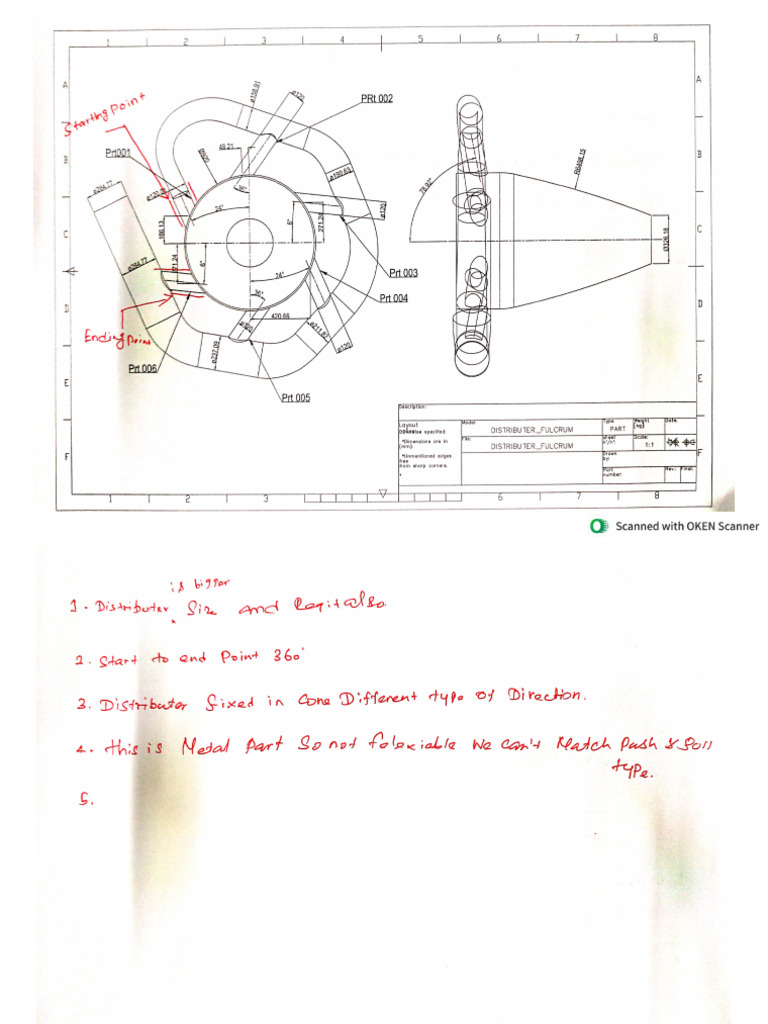 1 2 3 4 5 6 7 8
A
A
ø158.91
ø120
PRt 002
Starting Point
B
B
Prt001
49.21
36°
ø190.63
78.92°
R6498.15
ø264.77
24°
6°
271.24
ø120
C
C
166.13
ø326.18
ø264.77
6°
24°
Prt 003
D
D
36°
Prt 004
420.66
ø211.82
ø120
Ending Point
ø237.09
Prt 006
E
E
Prt 005
Description:
Layout
specified
*Dimensions are in
(mm).
*Unmentioned edges
free
from sharp corners.
Model: DISTRIBUTER_FULCRUM
Type PART
Weight (kg)
Date:
File: DISTRIBUTER_FULCRUM
sheet
Scale: 1:1
Drawn by:
Part number:
Rev.:
F
F
1 2 3 6 7 8
Scanned with OKEN Scanner
is bigger
1 - Distributer Size and also
2. Start to end Point 360°
3. Distributer fixed in Cone Different type of Direction.
4. this is Metal Part So not We can't Match Push &
type.
5.